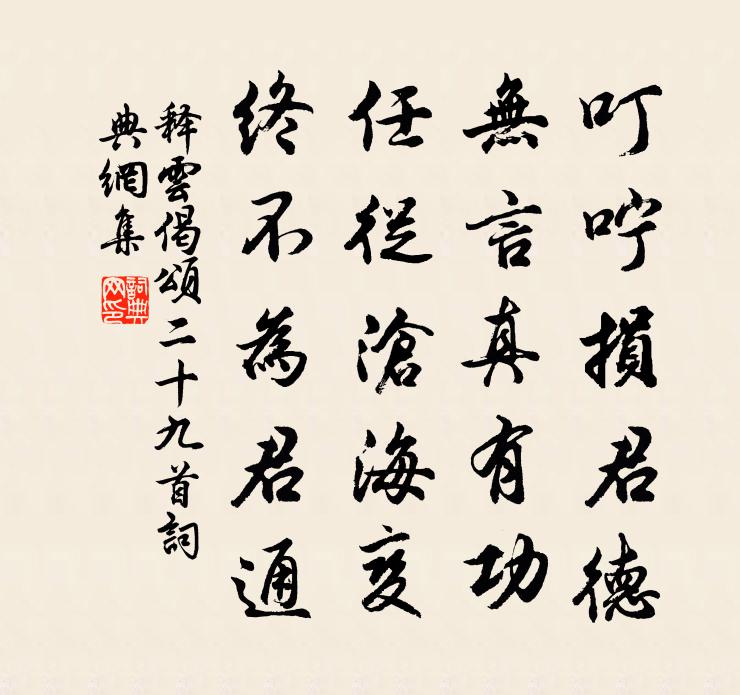 叮咛損君德
無言真有功
任從滄海变
终不為君通
释雲偈頌二十九首詞
典網集
詞典网印